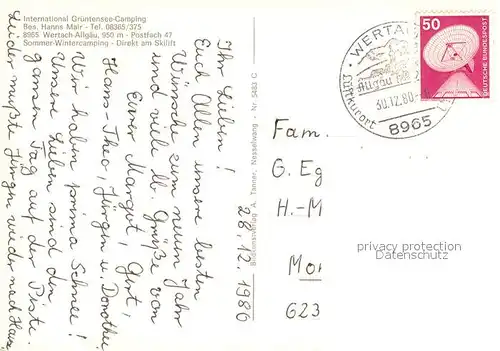 International Grüntensee-Camping
Bes. Hanns Mair - Tel. 08365/375
8965 Wertach-Allgäu, 950 m - Postfach 47
Sommer-Wintercamping - Direkt am Skilift
Ihr Lieben!
Euch Allen unsere besten
Wünsche zum neuen Jahr
und viele lb. Grüße von
Eurer Margot, Gert,
Hans-Theo, Jürgen u. Dorothee
Wir haben prima Schnee!
Unsere Lieben sind den
ganzen Tag auf der Piste.
Leider mußte Jürgen wieder nach Haus.
28.12.1986
Bildkunstverlag A. Tanner, Nesselwang - Nr. 5483 C
WERTA
Allgäu
30.12.80
Luftkurort
8965
50
DEUTSCHE BUNDESPOST
Fam.
G. Eg
H.-M
Mo
623
privacy protection